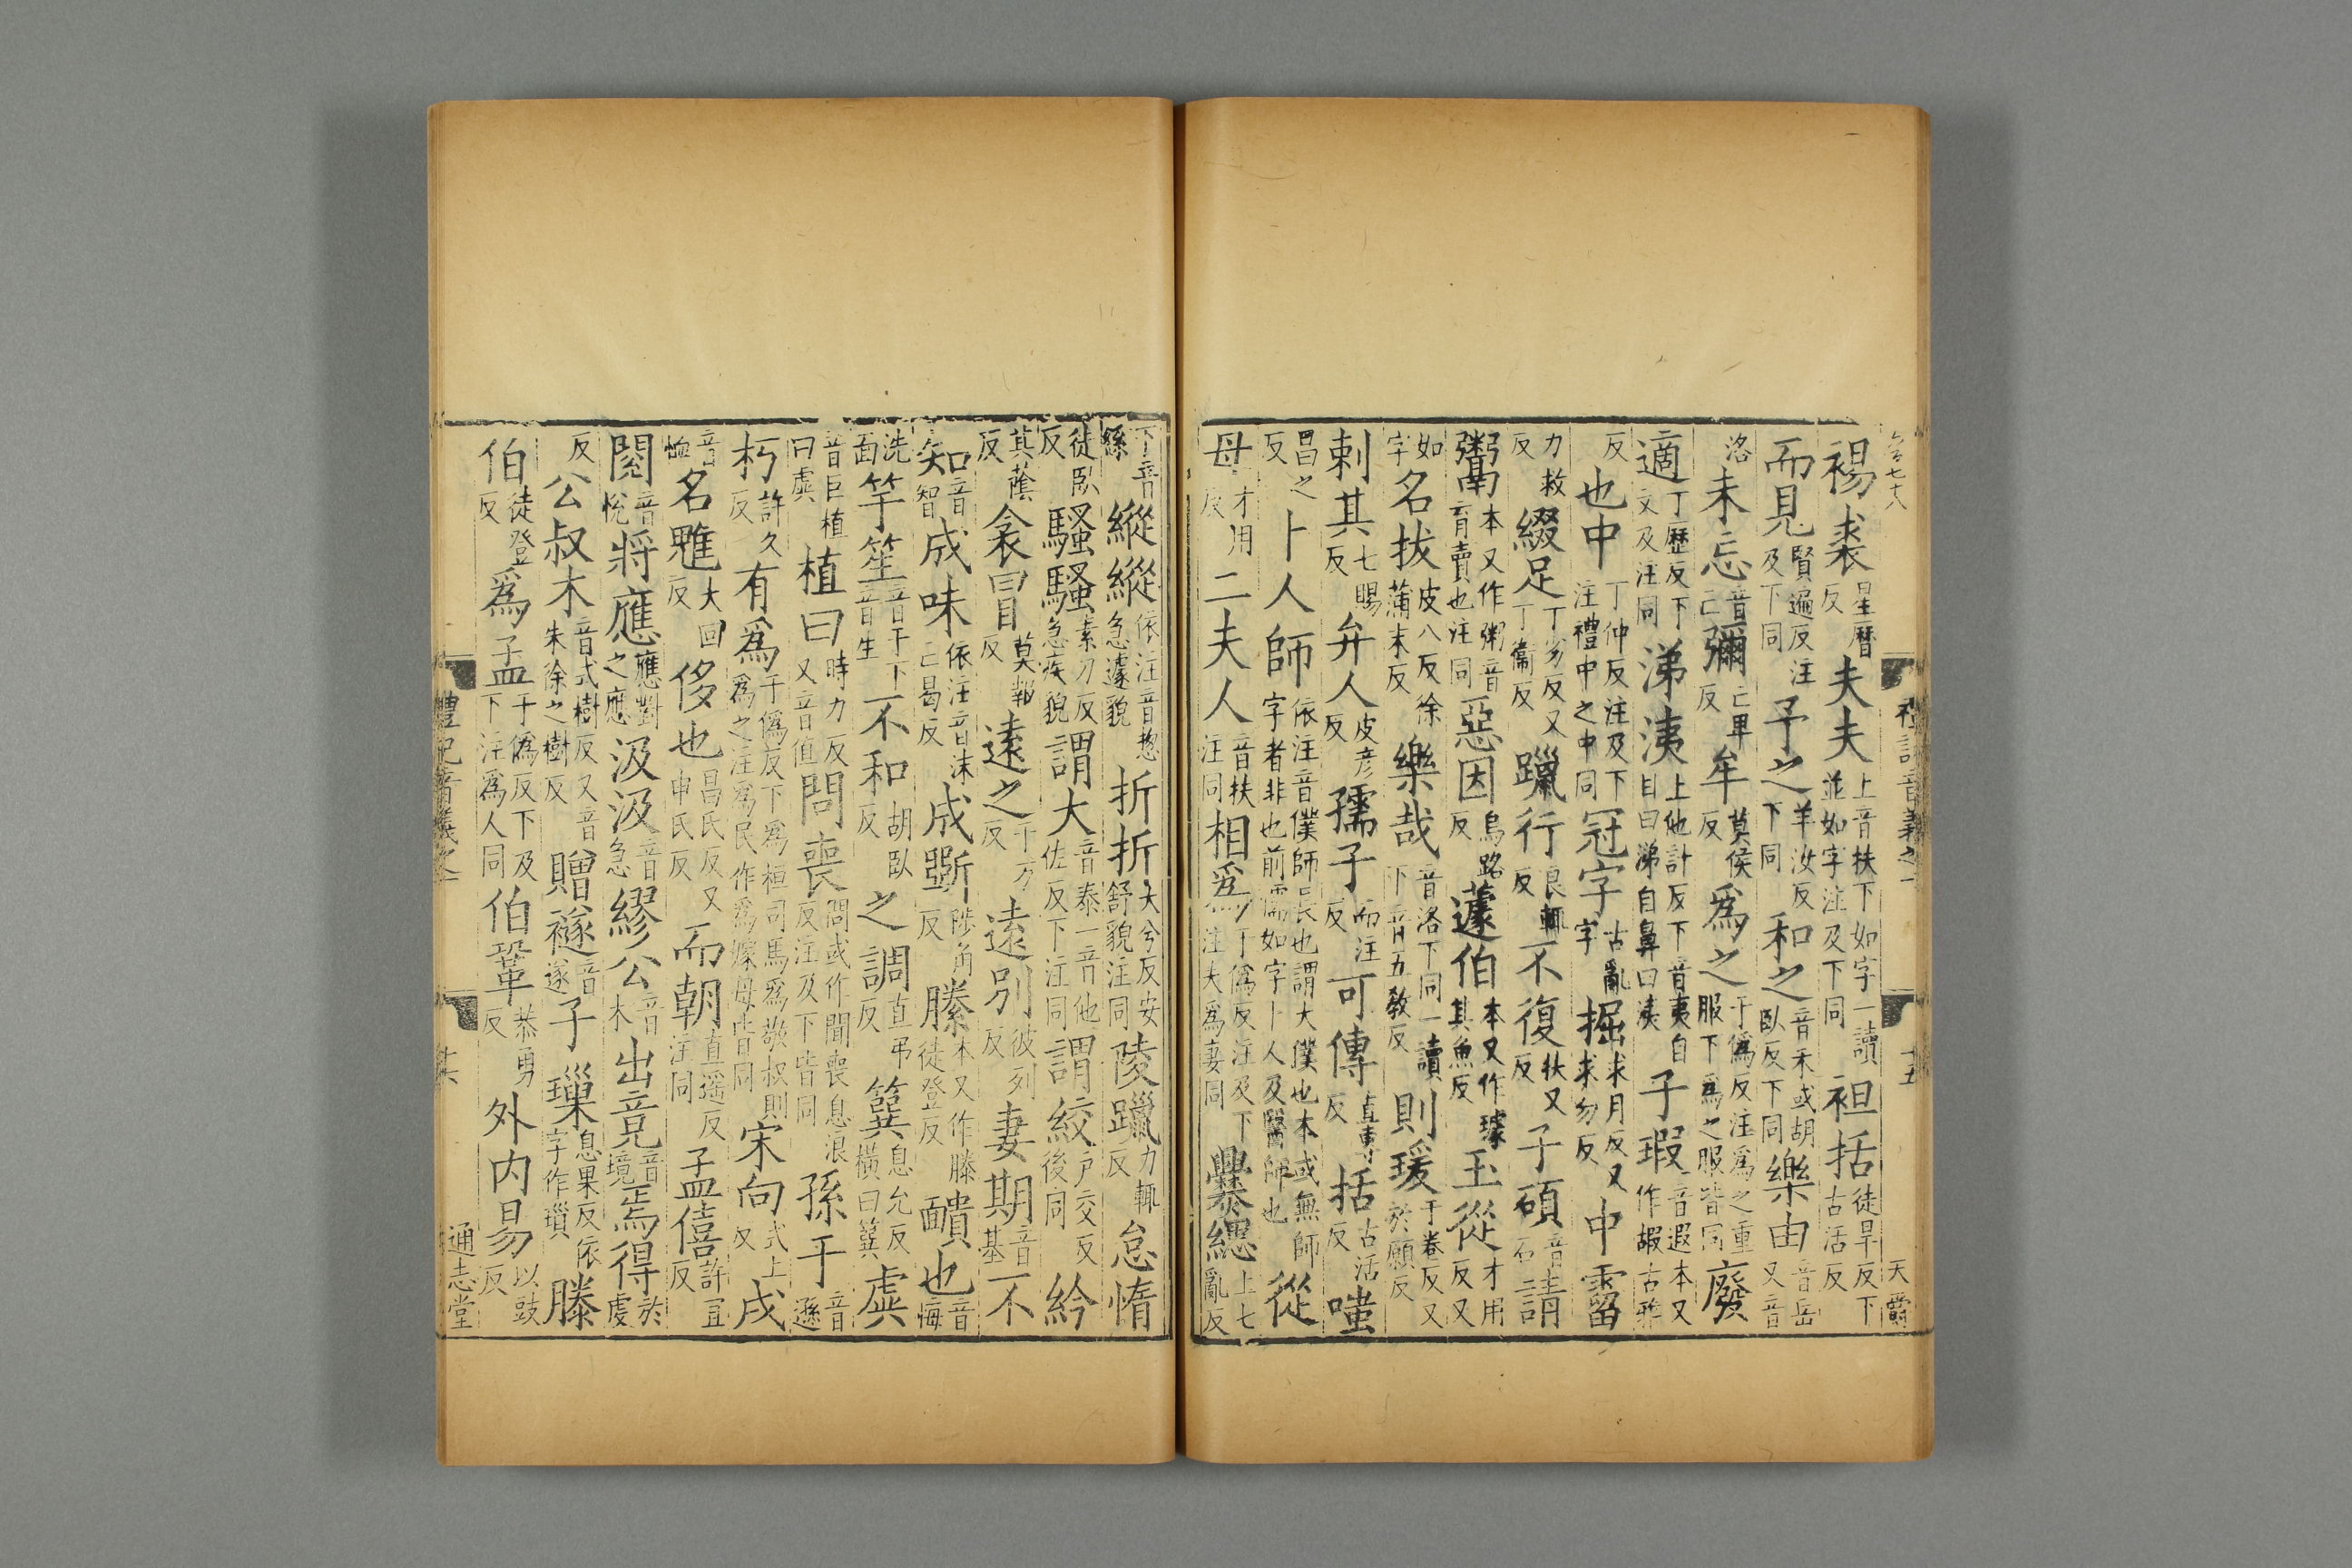 禮記音義之一 十五 天爵
裼裘星曆反夫夫上音扶下如字一讀並如字注及下同袒括徒旱反下古活反
而見賢遍反注及下同予之羊汝反下同和之音禾或胡臥反下同樂由音岳又音
洛未忘音亡彌亡卑反牟莫侯反爲之于僞反注爲之重服下爲之服皆同廢
適丁歷反下文及注同涕洟上他計反下音夷自目曰涕自鼻曰洟子瑕音遐本又作嘏古雅
反也中丁仲反注及下注禮中之中同冠字古亂字掘求月反又求勿反中霤
力救反綴足丁劣反又丁衞反躐行良輒反不復扶又反子碩音石請
粥本又作粥音育賣也注同惡因烏路反蘧伯本又作璩其魚反玉從才用反又
如字名拔皮八反徐蒲末反樂哉音洛下同一讀下音五敎反則瑗于卷反又於願反
剌其七賜反弁人皮彦反孺子而注反可傳直專反括古活反嗤
昌之反卜人師依注音僕師長也謂大僕也本或無師字者非也前儒如字卜人及醫師也從
母才用反二夫人音扶注同相爲于僞反注及下注夫爲妻同爨緦上七亂反
下音緦縱縱依注音揔急遽貌折折大兮反安舒貌注同陵躐力輒反怠惰
徒臥反騷騷素刀反急疾貌謂大音泰一音他佐反下注同謂絞户交反後同紟
其蔭反衾冒莫報反遠之于万反遠別彼列反妻期音基不
知音智成味依注音沬亡曷反成斲陟角反縢本又作滕徒登反靧也音悔
洗面竽笙音于下音生不和胡臥反之調直弔反簨息允反橫曰簨虡
音巨植曰虡植曰時力反又音值問喪問或作聞喪息浪反注及下皆同孫于音遜
朽許久反有爲于僞反下爲桓司馬爲敬叔則爲之注爲民作爲嫁母皆同宋向式上反戌
音恤名魋大回反侈也昌氏反又申氏反而朝直遥反注同孟僖許宜反
閱音悅將應應對之應汲汲音急繆公音木出竟音境焉得於虔
反公叔木音式樹反又音朱徐之樹反贈襚音遂子璅息果反依字作瑣滕
伯徒登反爲孟于僞反下及下注爲人同伯鞏恭勇反外内易以豉反
禮記音義之一 通志堂